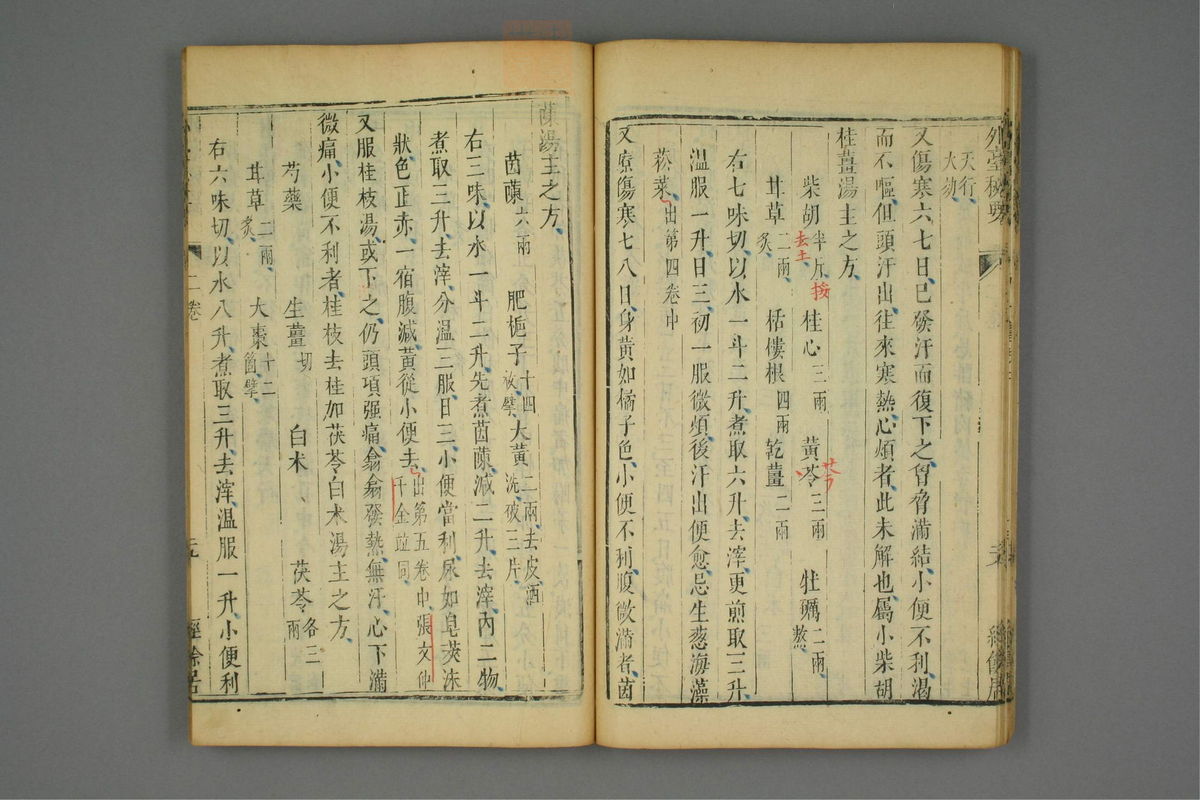 外臺秘要
天行
大劫
又傷寒六七日已發汗而復下之胷脅滿結小便不利渴
而不嘔但頭汗出往來寒熱心煩者此未解也屬小柴胡
桂薑湯主之方
柴胡半斤去土 桂心三兩 黃芩三兩 牡礪二兩熬
甘草二兩炙 栝僂根四兩 乾薑二兩
右七味切以水一斗二升煮取六升去滓更煎取三升
溫服一升日三初一服微煩後汗出便愈忌生葱海藻
菘菜出第四卷中
又療傷寒七八日身黃如橘子色小便不利腹微滿者茵
蔯湯主之方
茵蔯六兩 肥梔子十四枚擘 大黃二兩去皮酒洗破三片
右三味以水一斗二升先煮茵蔯減二升去滓內二物
煮取三升去滓分溫三服日三小便當利尿如皂莢沫
狀色正赤一宿腹減黃從小便去出第五卷中張文仲千金竝同
又服桂枝湯或下之仍頭項强痛翕翕發熱無汗心下滿
微痛小便不利者桂枝去桂加茯苓白朮湯主之方
芍藥 生薑切 白朮 茯苓各三兩
甘草二兩炙 大棗十二箇擘
右六味切以水八升煮取三升去滓溫服一升小便利
二卷
經餘居